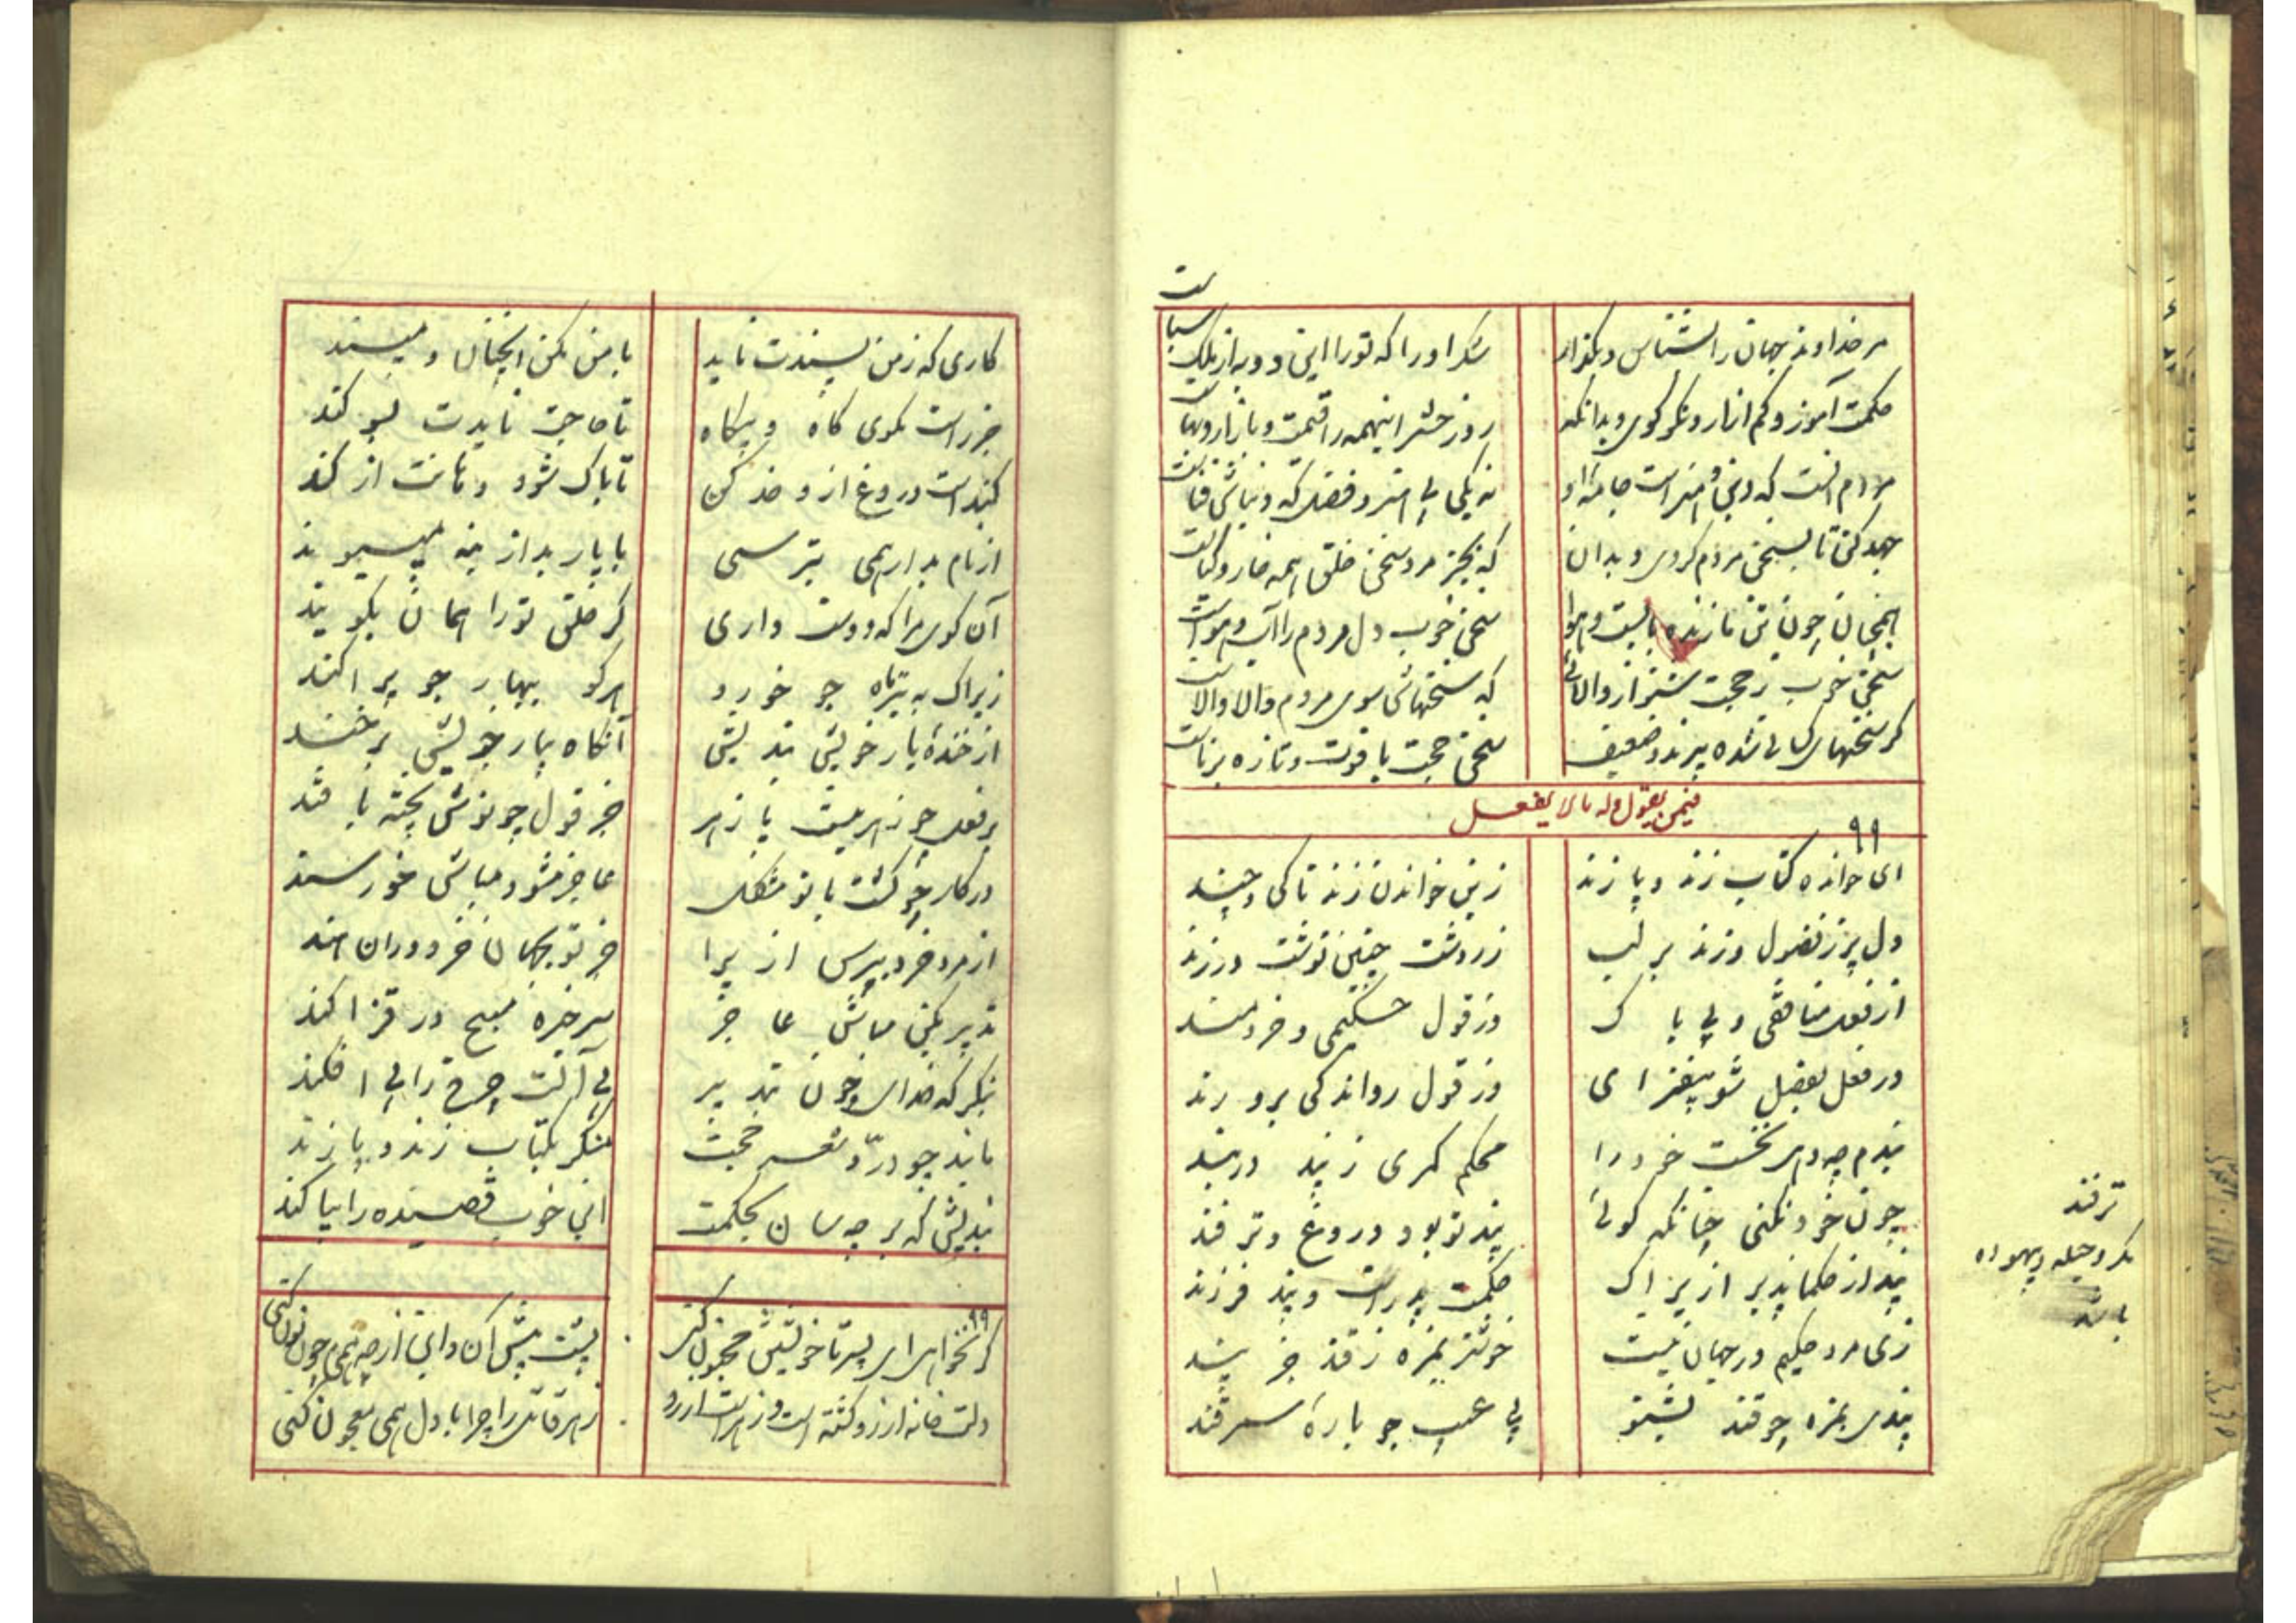 ست
مر خداوند جهان را بشناس و بگذار شکر او را که تو را این دو به از ملک سباست
حکمت آموز و کم آزار و نکو گوی و بدانکه روز حشر اینهمه را قیمت و بازار و بهاست
مردم آنست که دین و هنر است جامه او نه یکی بی هنر و فضل که دیباش قباست
جهد کن تا بسخن مردم گردی و بدان که بجز مرد سخن خلق همه خار و گیاست
همچنان چون تن ما زنده بآبست و هوا سخن خوب دل مردم را آب و هواست
سخن خوب ز حجت شنو ار والائی که سخنهاش سوی مردم والا والاست
گر سخنهای کسائی شده پیرند و ضعیف سخن حجت با قوت و تازه برناست
فیمن یقول وله مالا یفعل
۹۹
ای خوانده کتاب زند و پازند زین خواندن زند تا کی و چند
دل پر ز فضول و زند بر لب زردشت چنین نوشت در زند
از فعل منافقی و بی باک وز قول حکیمی و خردمند
در فعل بفضل شو بیفزای وز قول رواندکی برو رند
پندم چه دهی نخست خود را محکم کمری ز پند در بند
چون خود نکنی چنانکه گوئی پند تو بود دروغ و ترفند
پند از حکما پذیر ازیراک حکمت پدر است و پند فرزند
زی مرد حکیم در جهان نیست خوشتر بمزه ز قند جز پند
پندی بمزه چو قند بشنو بی عیب چو باره سمرقند
ترفند
مکر و حیله و بیهوده
باشد
کاری که ز من پسندت ناید با من مکن آنچنان و مپسند
جز راست مگوی گاه و بیگاه تا حاجت نایدت بسوگند
گنده است دروغ ازو حذر کن تا پاک شود دهانت از گند
از نام بد ار همی بترسی با یار بد از بنه مپیوند
آن گوی مرا که دوست داری گر خلق تو را همان بگویند
زیراک به تیرماه جو خورد هر کو ببهار جو پراکند
از خنده یار خویش بندیش آنگاه بیار خویش بر خند
بر فعل چو زهر نیست پازهر جز قول چو نوش پخته با قند
در کار چو گشت با تو مشکل عاجز مشو و مباش خورسند
از مرد خرد بپرس ازیرا جز تو بجهان خردوران هند
تدبیر بکن مباش عاجز سر خیره مپیچ در قزاکند
بنگر که خدای چون بتدبیر بی آلت چرخ را پی افکند
ماند چو در و شعر حجت منگر بکتاب زند و پازند
بندیش که بر چه سان بحکمت این خوب قصیده را بیاکند
۹۹
گر نخواهی ای پسر تا خویشتن مجنون کنی پشت پیش آن و این از چه همی چون نون کنی
دلت خانه آرزو گشته است و زهر است آرزو زهر قاتل را چرا با دل همی معجون کنی